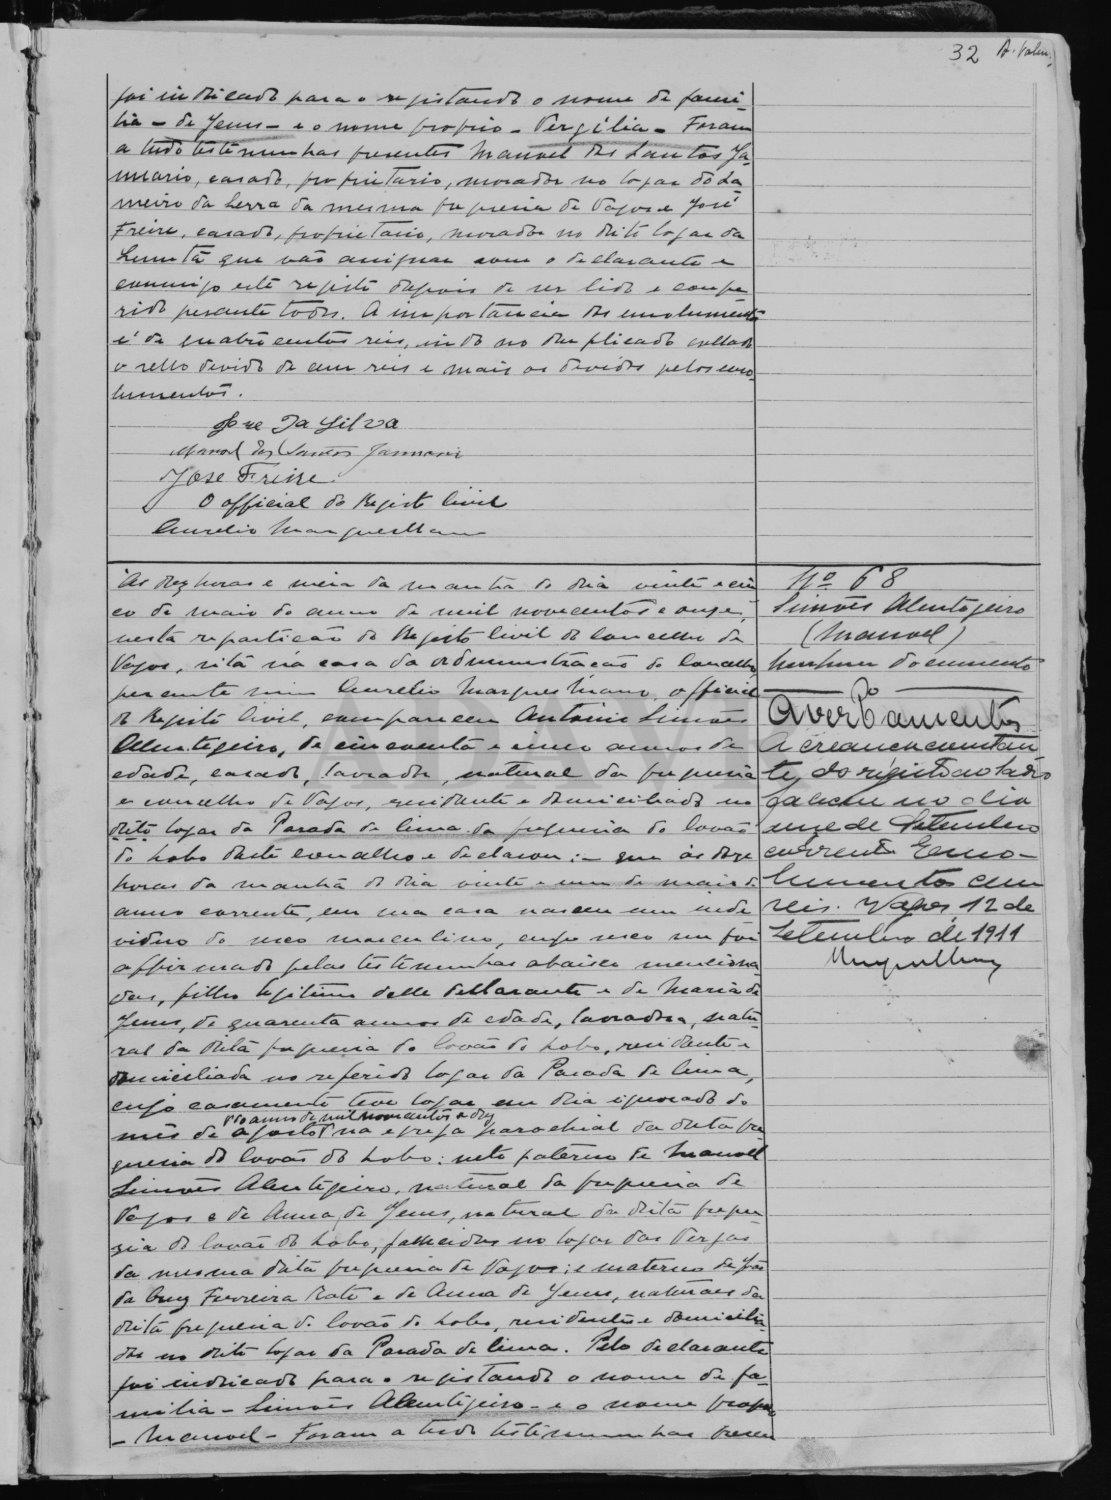 32 A. Valen,
foi indicado para o registando o nome de fami-
lia - de Jesus - e o nome proprio - Vergilia - Foram
a tudo testemunhas presentes Manoel dos Santos Ja-
nuario, casado, proprietario, morador no logar do La-
meiro da Serra da mesma freguesia de Vagos e José
Freire, casado, proprietario, morador no dito logar da
que vão assignar com o declarante e
commigo este registo depois de ser lido e confe-
rido perante todos. A importancia dos emolumentos
é de quatrocentos reis, indo no duplicado collado
o sello devido de cem reis e mais os devidos pelos emo-
lumentos.
José da Silva
Manoel dos Santos Januario
Jose Freire
O official do Registo Civil
Aurelio Marques Mano
Ás dez horas e meia da manhã do dia vinte e cin-
co de maio do anno de mil novecentos e onze,
nesta repartição do Registo Civil do concelho de
Vagos, sita na casa da administração do Concelho,
perante mim Aurelio Marques Mano, official
do Registo Civil, compareceu Antonio Simões
Alentejeiro, de cincoenta e cinco annos de
edade, casado, lavrador, natural da freguesia
e concelho de Vagos, residente e domiciliado no
dito logar da Parada de Cima da freguesia do Covão
do Lobo deste concelho e declarou: - que ás doze
horas da manhã do dia vinte e um de maio do
anno corrente, em sua casa nasceu um indi-
viduo do sexo masculino, cujo sexo me foi
affirmado pelas testemunhas abaixo menciona-
das, filho legitimo delle declarante e de Maria de
Jesus, de quarenta annos de edade, lavradora, natu-
ral da dita freguesia do Covão do Lobo, residente e
domiciliada no referido logar da Parada de Cima,
cujo casamento teve logar em dia ignorado do
do anno de mil novecentos e dez
mês de agosto na egreja parochial da dita fre-
guesia do Covão do Lobo: neto paterno de Manoel
Simões Alentejeiro, natural da freguesia de
Vagos e de Anna de Jesus, natural da dita fregue-
sia do Covão do Lobo, fallecidos no logar das Vergas
da mesma dita freguesia de Vagos; e materno de João
da Cruz Ferreira Rato e de Anna de Jesus, naturaes da
dita freguesia do Covão do Lobo, residentes e domicilia-
dos no dito logar da Parada de Cima. Pelo declarante
foi indicado para o registando o nome de fa-
milia - Simões Alentejeiro - e o nome proprio
- Manoel - Foram a tudo testemunhas presen
Nº 68
Simões Alentejeiro
(Manoel)
Nenhum documento
Averbamentos
A creança constan-
te do registo ao lado
faleceu no dia
onze de Setembro
corrente Emo-
lumentos cem
reis. Vagos, 12 de
Setembro de 1911
ADAVR